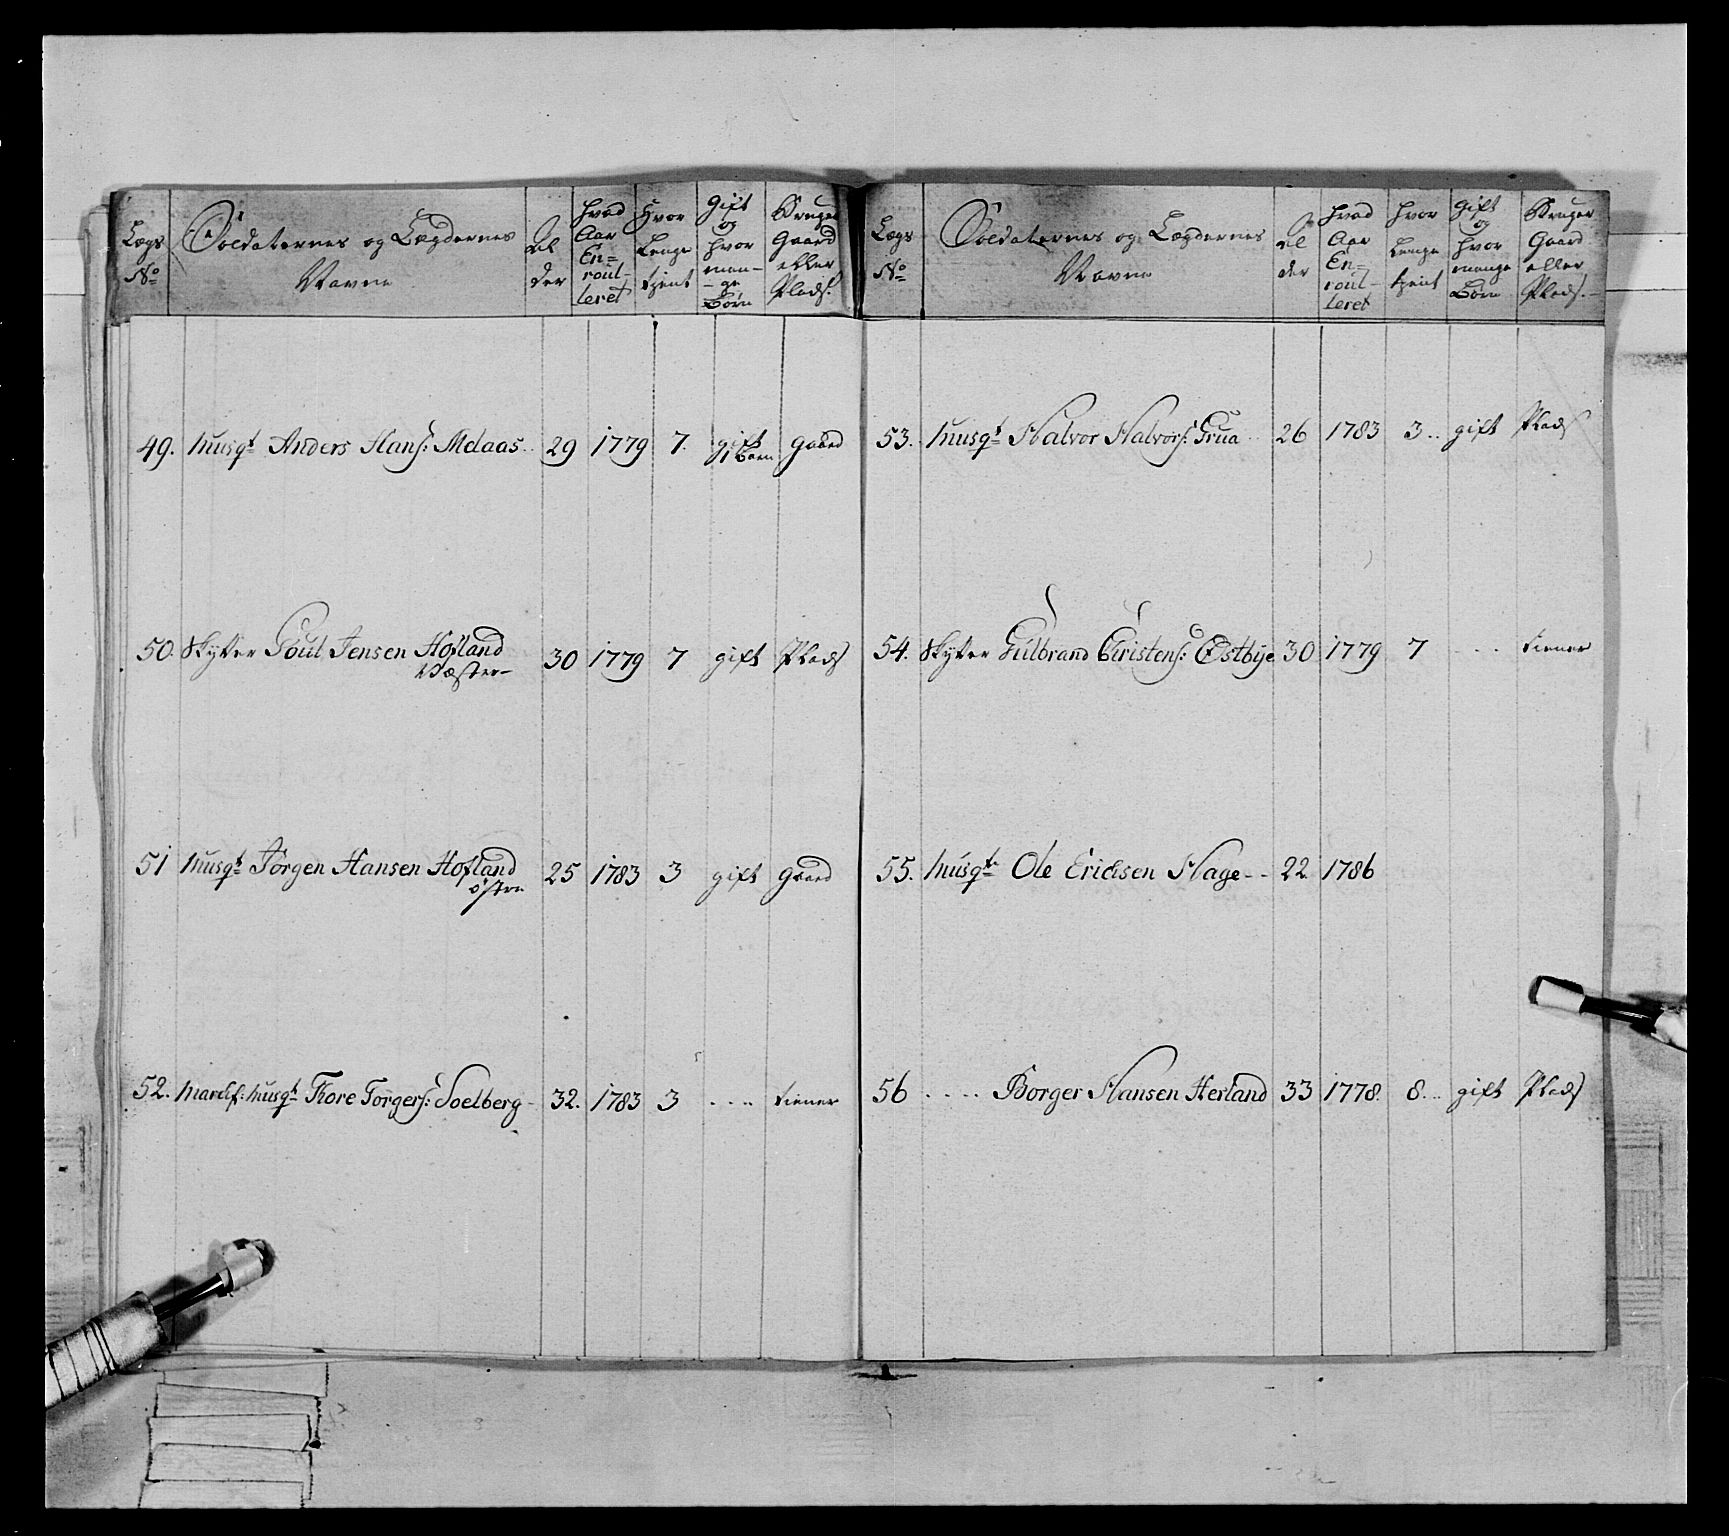 Lægs No | Soldaternes og Lægdernes Navne | Al der | Hvad Aar En= roul- leret | Hvor Lenge tient | Gift og hvor man- ge Børn | Bruger Gaard eller Plads.
49. Musqt Anders Hans: Melaas.. 29 1779 7. gift 1 Barn gaard
50. Skytter Poul Jensen Hofland 30 1779 7 gift Plads
Væster-
51 Musqt Jörgen Hansen Hofland 25 1783 3 gift gaard
östre
52. March: Musqt Thore Torgers: Soelberg- 32. 1783 3 .... tiener
Lægs No | Soldaternes og Lægdernes Navne | Al der | Hvad Aar En= roul- leret | Hvor Lenge tient | Gift og hvor mange Børn | Bruger Gaard eller Plads.-
53. Musqt Halvor Halvors: Grua.. 26 1783 3.. gift Plads
54. Skytter Gulbrand Christens: Østbÿe 30 1779 7 .... tiener
55. Musqt Ole Ericksen Hage-- 22 1786
56 .... Borger Hansen Herland 33 1778. 8... gift Plads